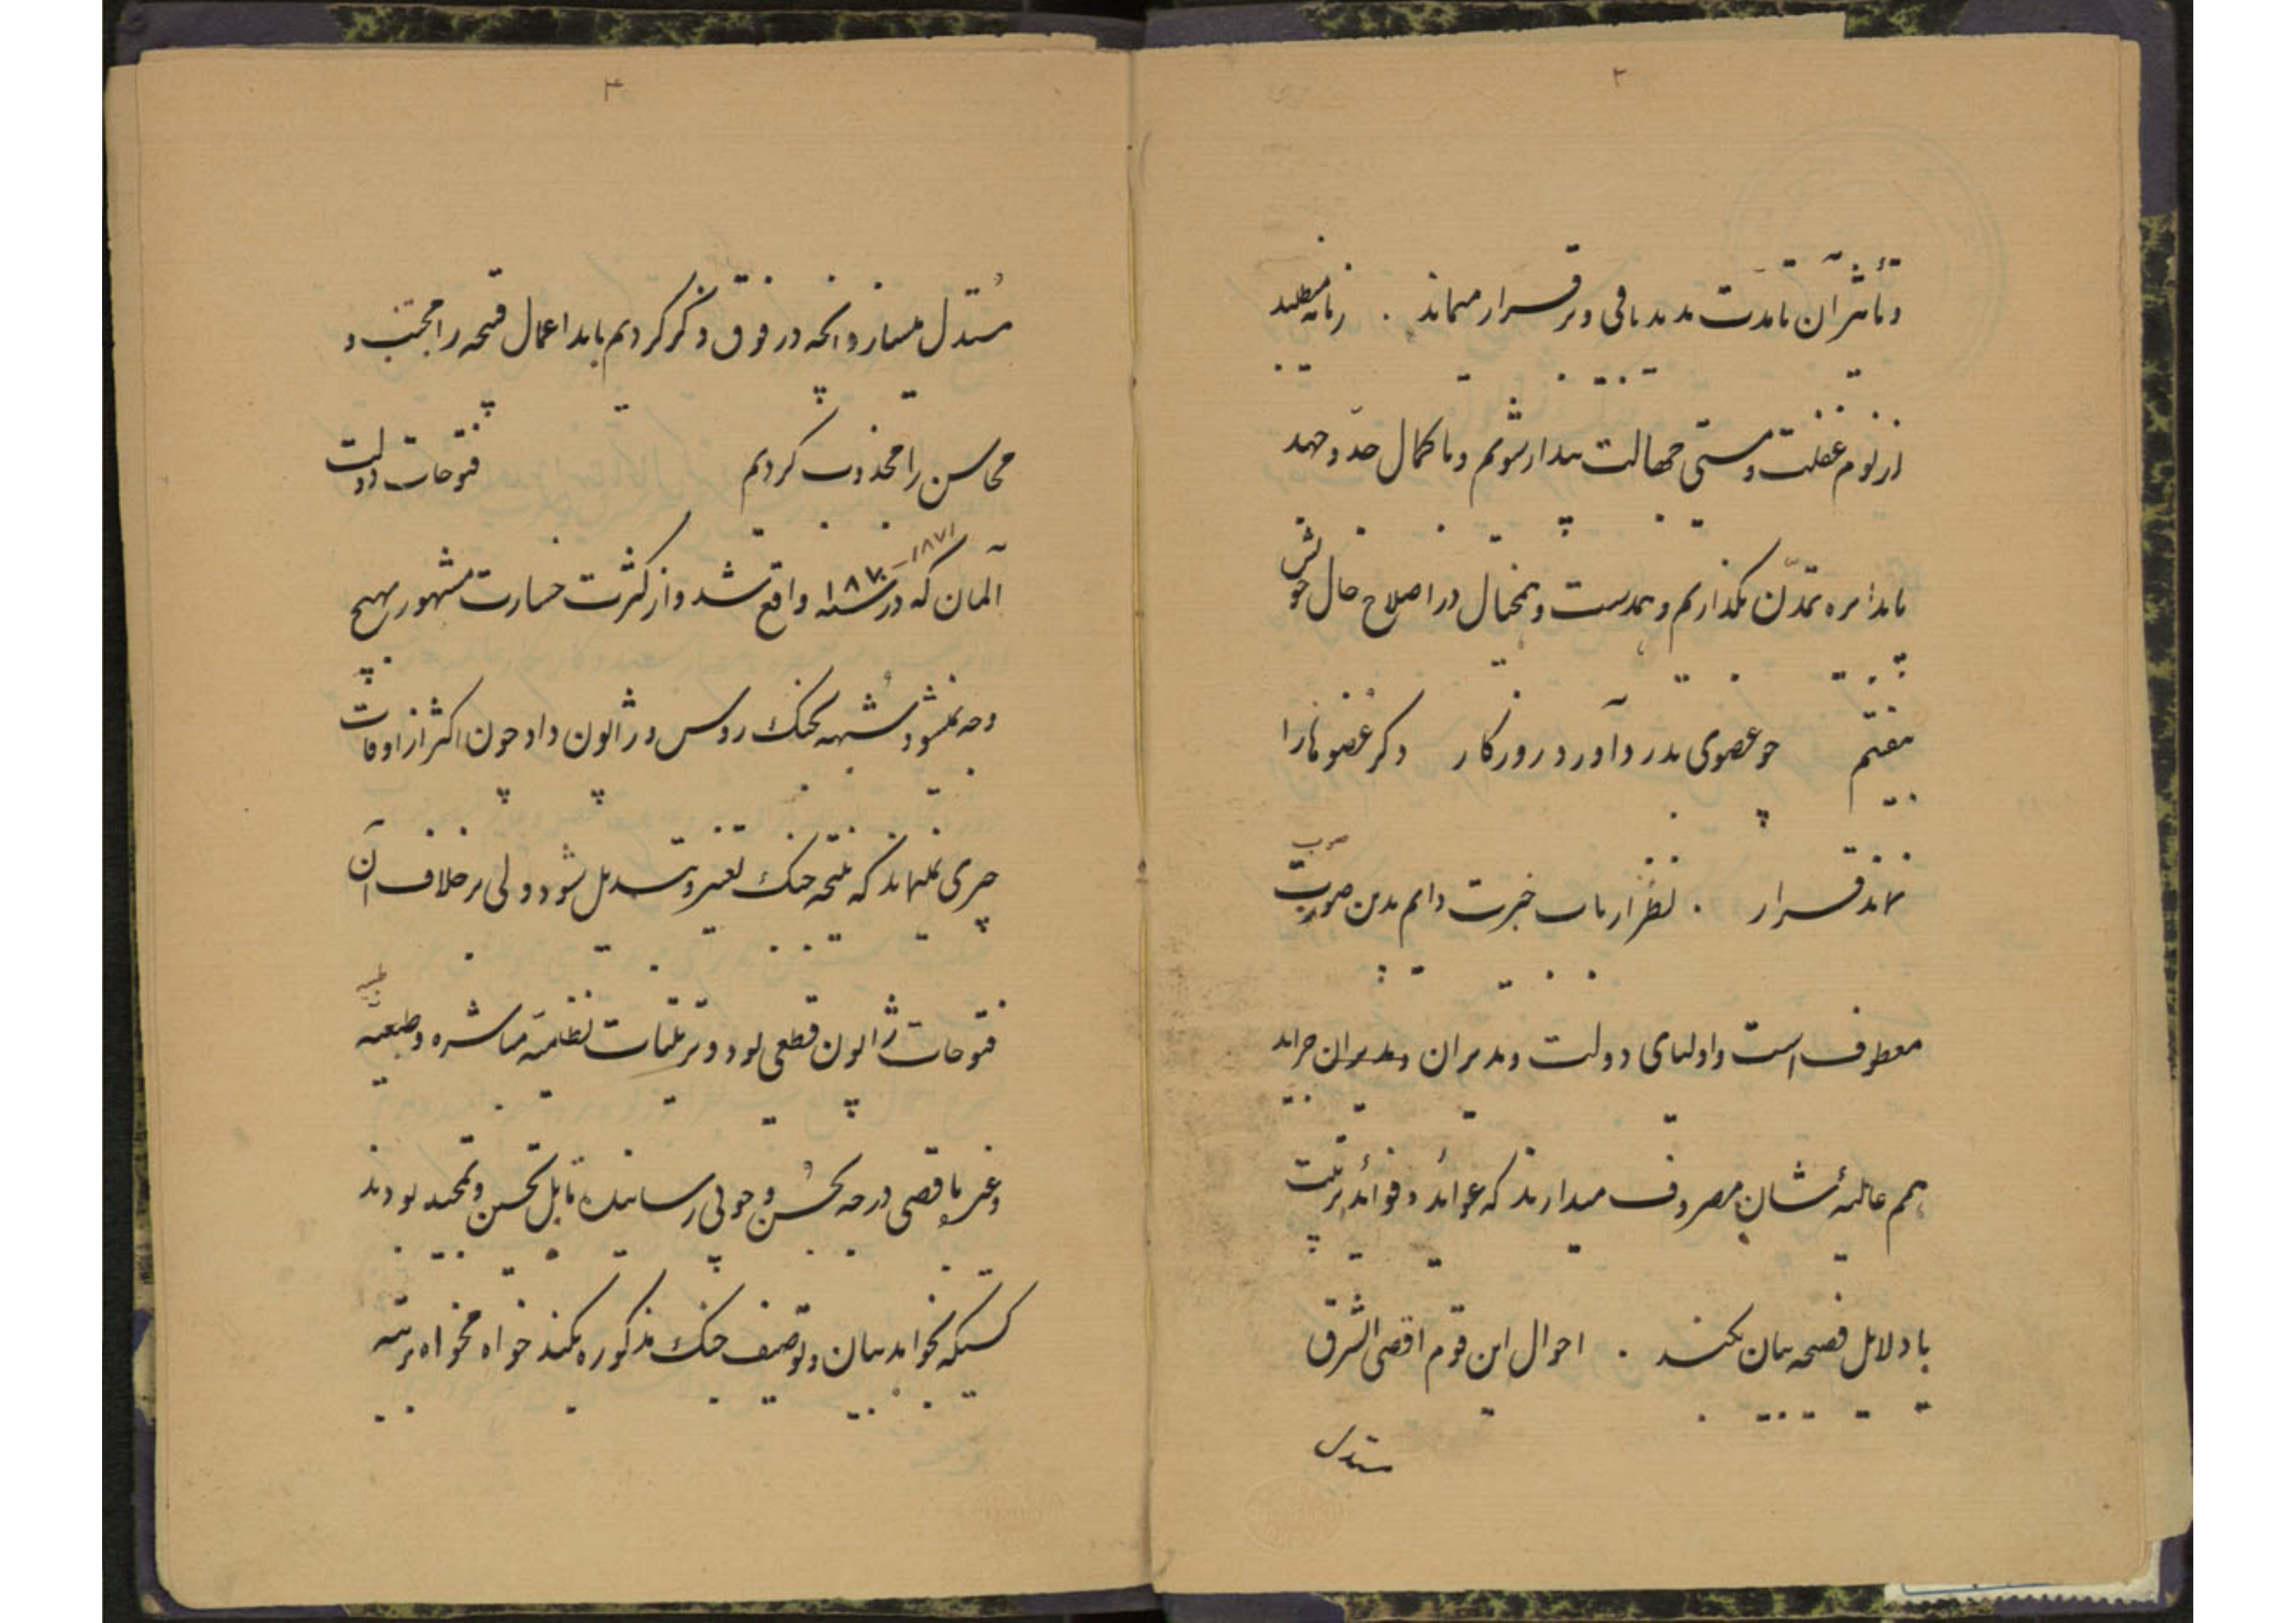 ۲
و تأثیر آن تا مدّت مدید باقی و برقرار میماند . زمانه میطلبد
از نوم غفلت و مستی جهالت بیدار شویم و با کمال جدّ و جهد
پا بدایره تمدّن بگذاریم و همدست و همخیال در اصلاح حال خویش
بیفتیم چو عضوی بدرد آورد روزگار دگر عضوها را
نماند قرار . نظر ارباب خبرت دایم بدین صوب
معطوف است و اولیای دولت و مدیران و مدبران جراید
همم عالیهٔ شان مصروف میدارند که عوائد و فوائد تربیت
با دلایل فصیحه بیان بکنند . احوال این قوم اقصی الشرق
مستدل
۳
مُستدل میسازد آنچه در فوق ذکر کردیم باید اعمال قبیحه را مجتنب و
محاسن را مجذوب کردیم فتوحات دولت
آلمان که در سنه ۱۸۷۰–۱۸۷۱ واقع شد و از کثرت خسارت مشهور بهیچ
وجه نمیشود شبیه بجنگ روس و ژاپون داد چون اکثر از اوقات
چیزی نمیماند که نتیجه جنگ تغییر و تبدیل شود ولی بر خلاف آن
فتوحات ژاپون قطعی بود و ترتیبات نظامیّه مباشره و طبیّه
و غیره باقصی درجه بحُسن و خوبی رسانیده قابل تحسین و تمجید بودند
کسیکه بخواهد بیان و توصیف جنگ مذکوره بکند خواه مخواه بر تبه